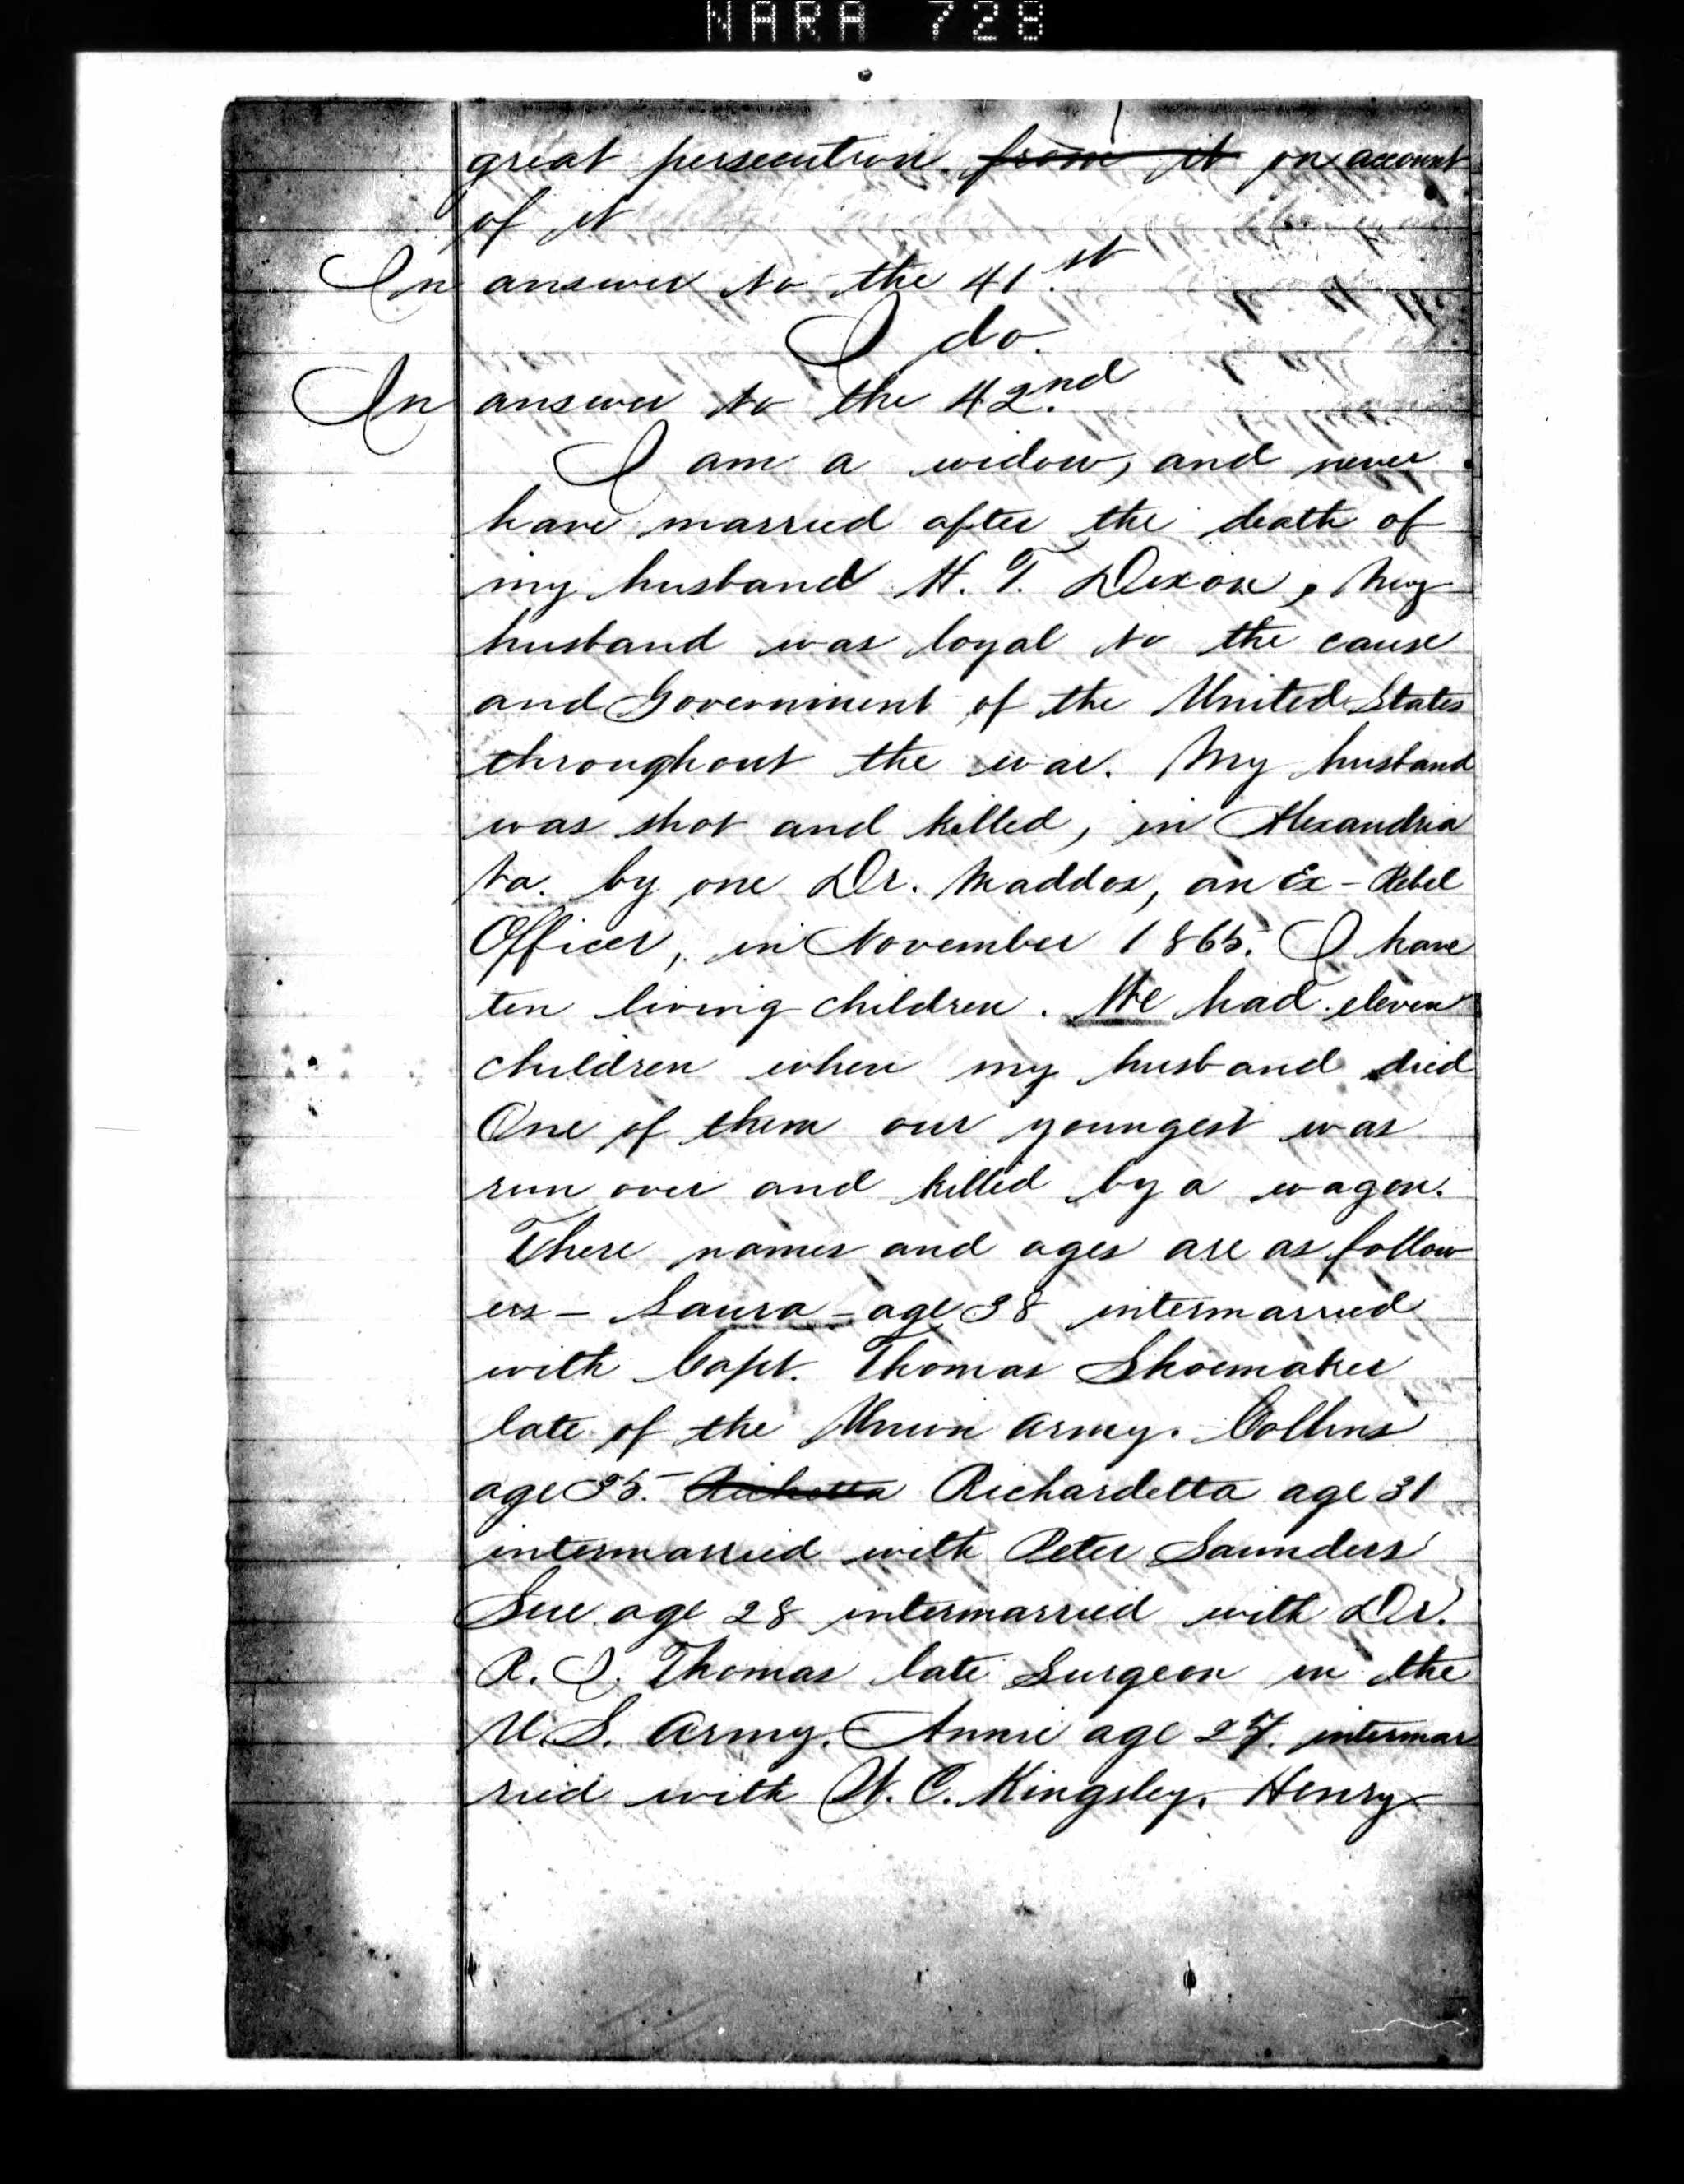 NARA 728
great persecution from it on account
of it
In answer to the 41.st
I do.
In answer to the 42.nd
I am a widow, and never
have married after the death of
my husband H. T. Dixon, My
husband was loyal to the cause
and Government of the United States
throughout the war. My husband
was shot and killed, in Alexandria
Va. by one Dr. Maddox, an Ex-Rebel
Officer, in November 1865. I have
ten living children. We had eleven
children when my husband died
One of them our youngest was
run over and killed by a wagon.
There names and ages are as follow
ers - Laura - age 38 intermarried
with Capt. Thomas Shoemaker
late of the Union Army. Collins
age 35. Richetta Richardetta age 31
intermarried with Peter Saunders
Sue age 28 intermarried with Dr.
R. Q. Thomas late Surgeon in the
U.S. Army. Annie age 27. intermar
ried with W. C. Kingsley. Henry